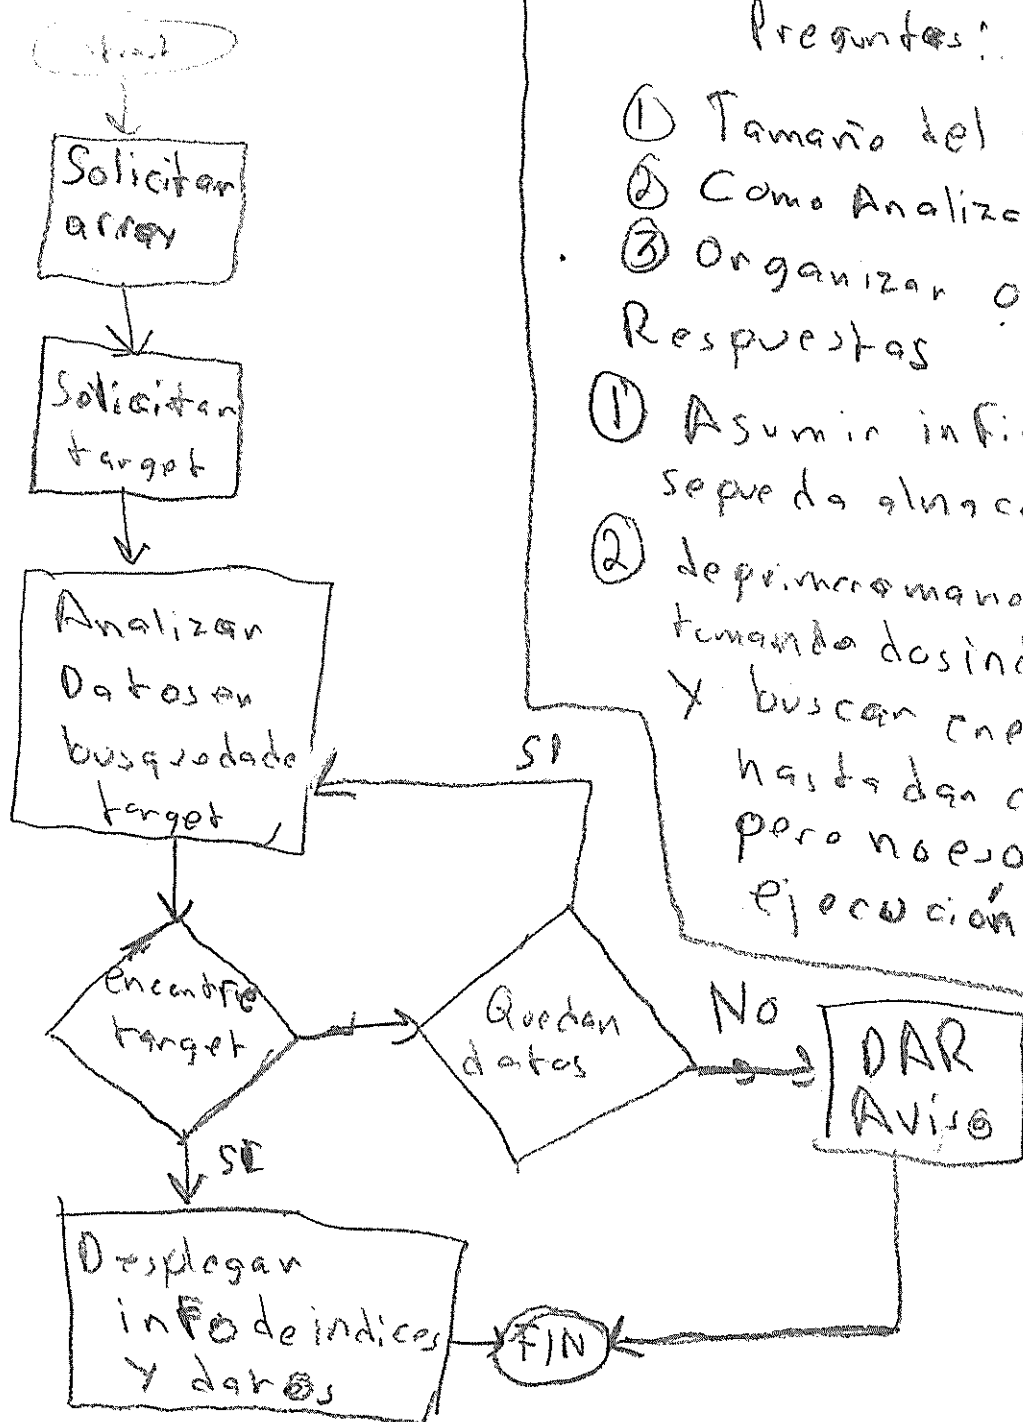 Start
Solicitar
array
Solicitar
target
Analizar
Datos en
busqueda de
target
encontre
target
SI
Quedan
datos
SI
No
DAR
Aviso
Desplegar
info de indices
Y datos
FIN
Preguntas:
① Tamaño del
② Como Analiza
③ Organizar o
Respuestas
① Asumir infi
se pueda almac
② de primera mano
tomando dos ind
Y buscar en e
hasta dar c
pero no es o
ejecución